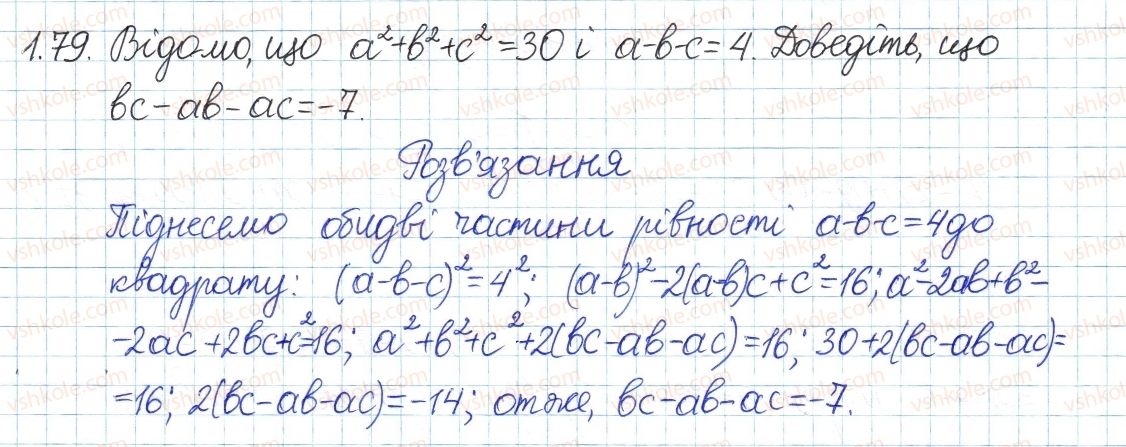 1.79. Відомо, що a²+b²+c²=30 і a-b-c=4. Доведіть, що
bc-ab-ac=-7.
Розв'язання
Піднесемо обидві частини рівності a-b-c=4 до
квадрату: (a-b-c)²=4²; (a-b)²-2(a-b)c+c²=16; a²-2ab+b²-
-2ac+2bc+c²=16; a²+b²+c²+2(bc-ab-ac)=16; 30+2(bc-ab-ac)=
=16; 2(bc-ab-ac)=-14; отже, bc-ab-ac=-7.